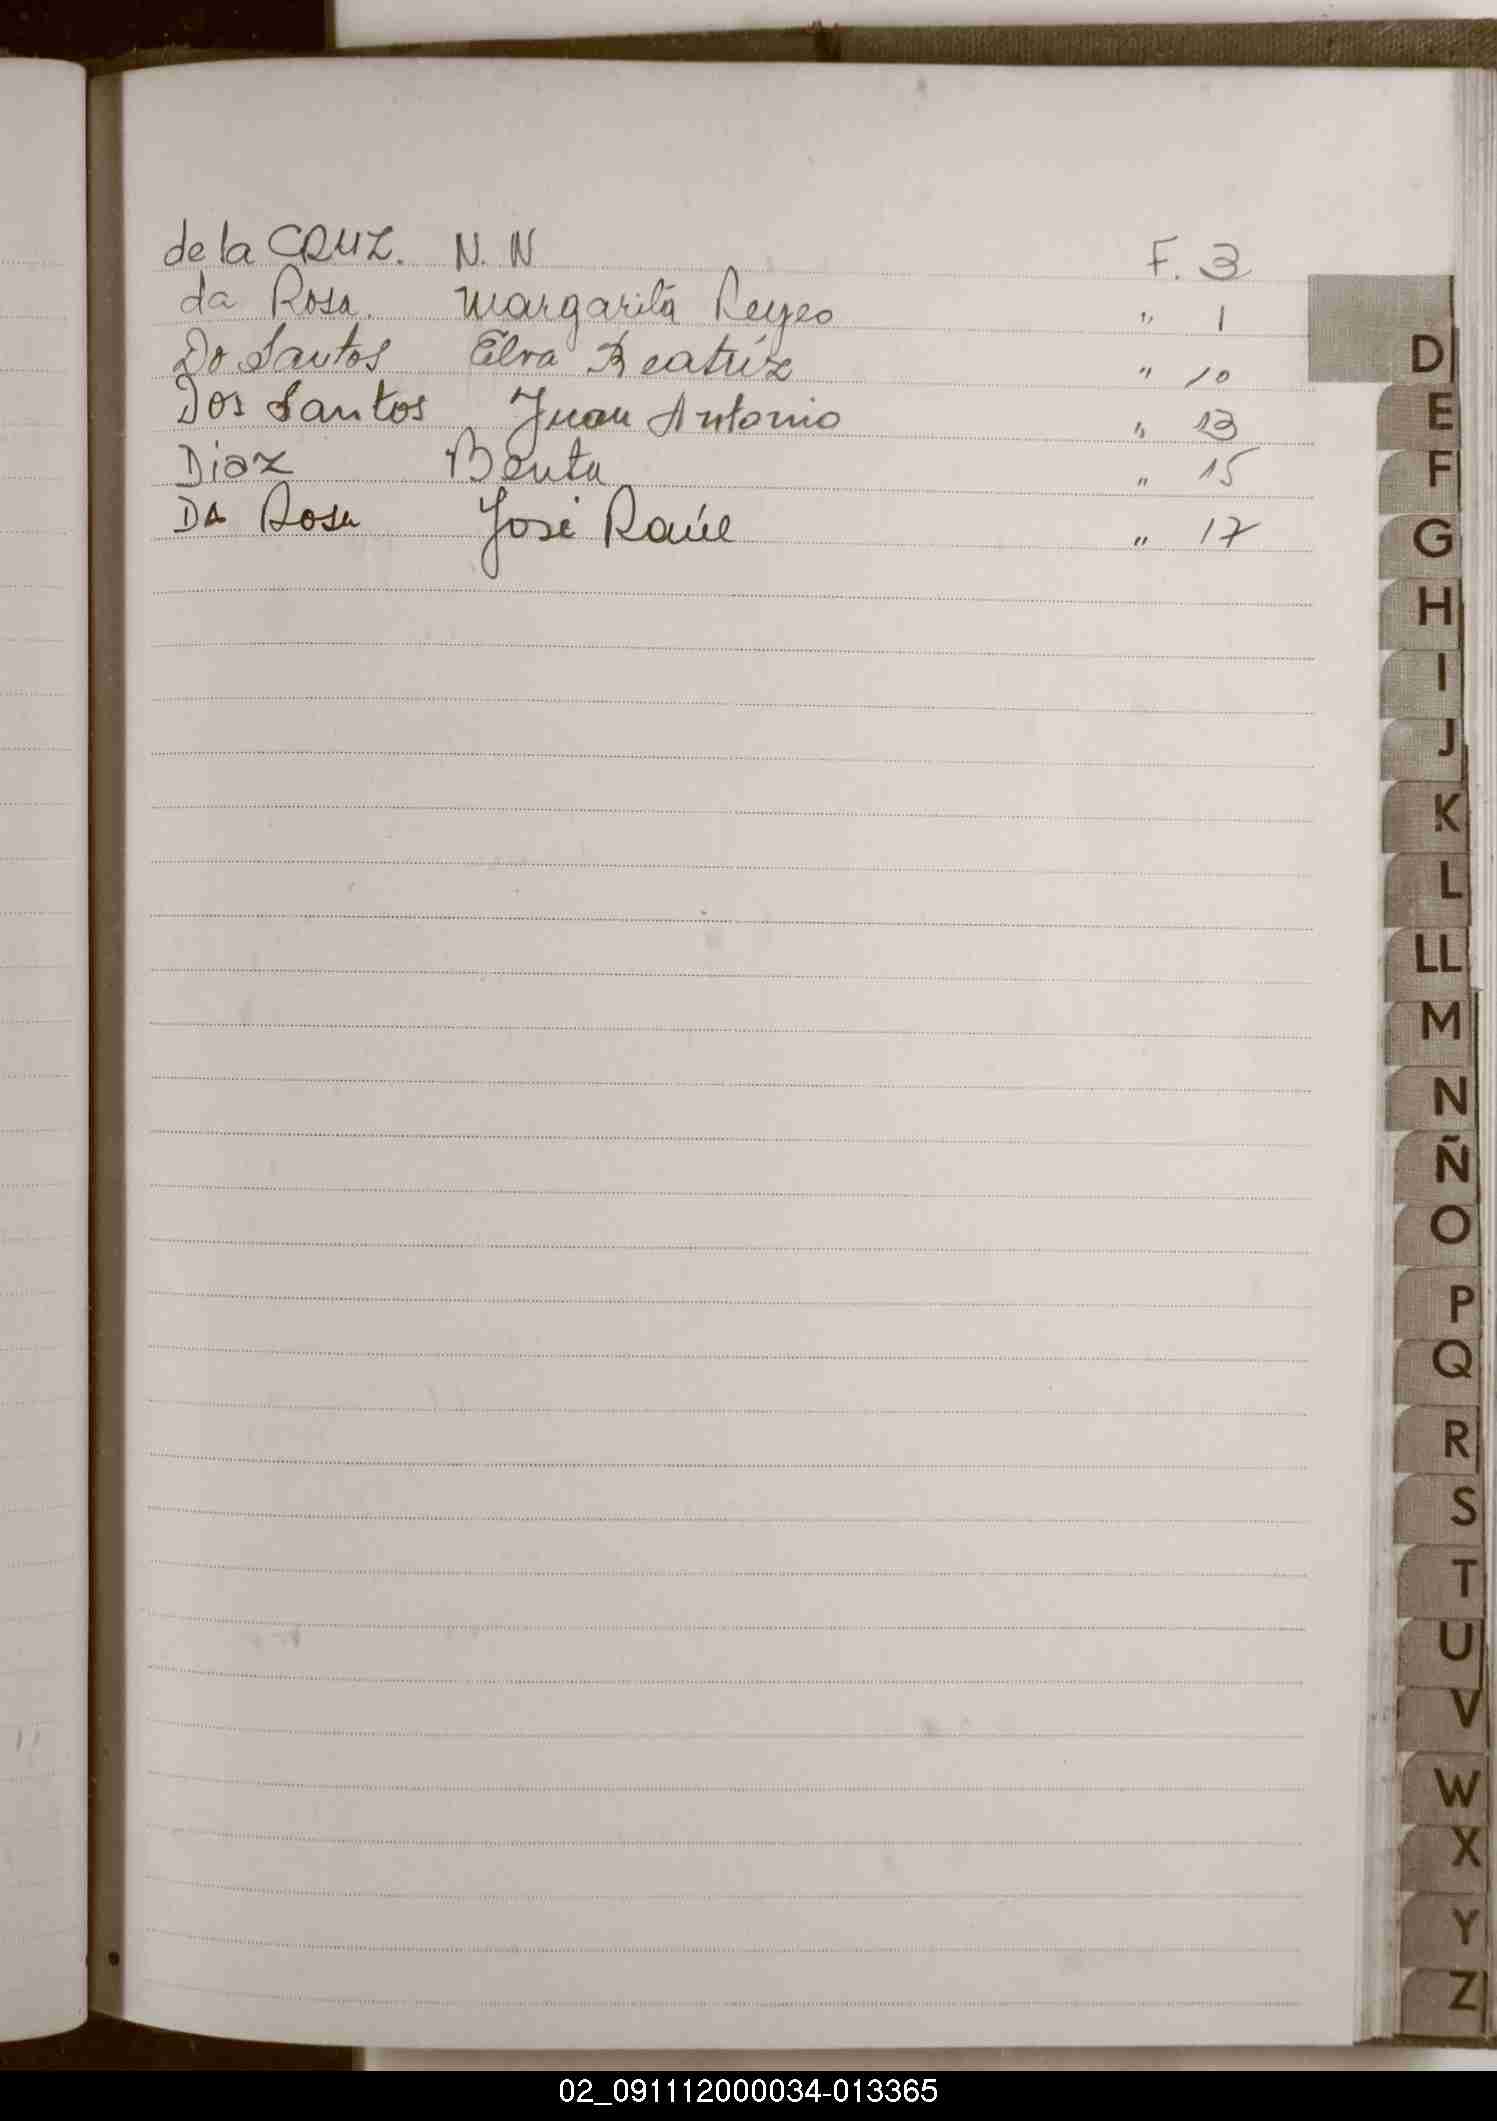 de la CRUZ. N. N F. 3
da Rosa. Margarita Reyes " 1
Do Santos Elva Beatriz " 10
Dos Santos Juan Antonio " 13
Diaz Benta " 15
DA Rosa José Raúl " 17
D
E
F
G
H
I
J
K
L
LL
M
N
Ñ
O
P
Q
R
S
T
U
V
W
X
Y
Z
02_091112000034-013365